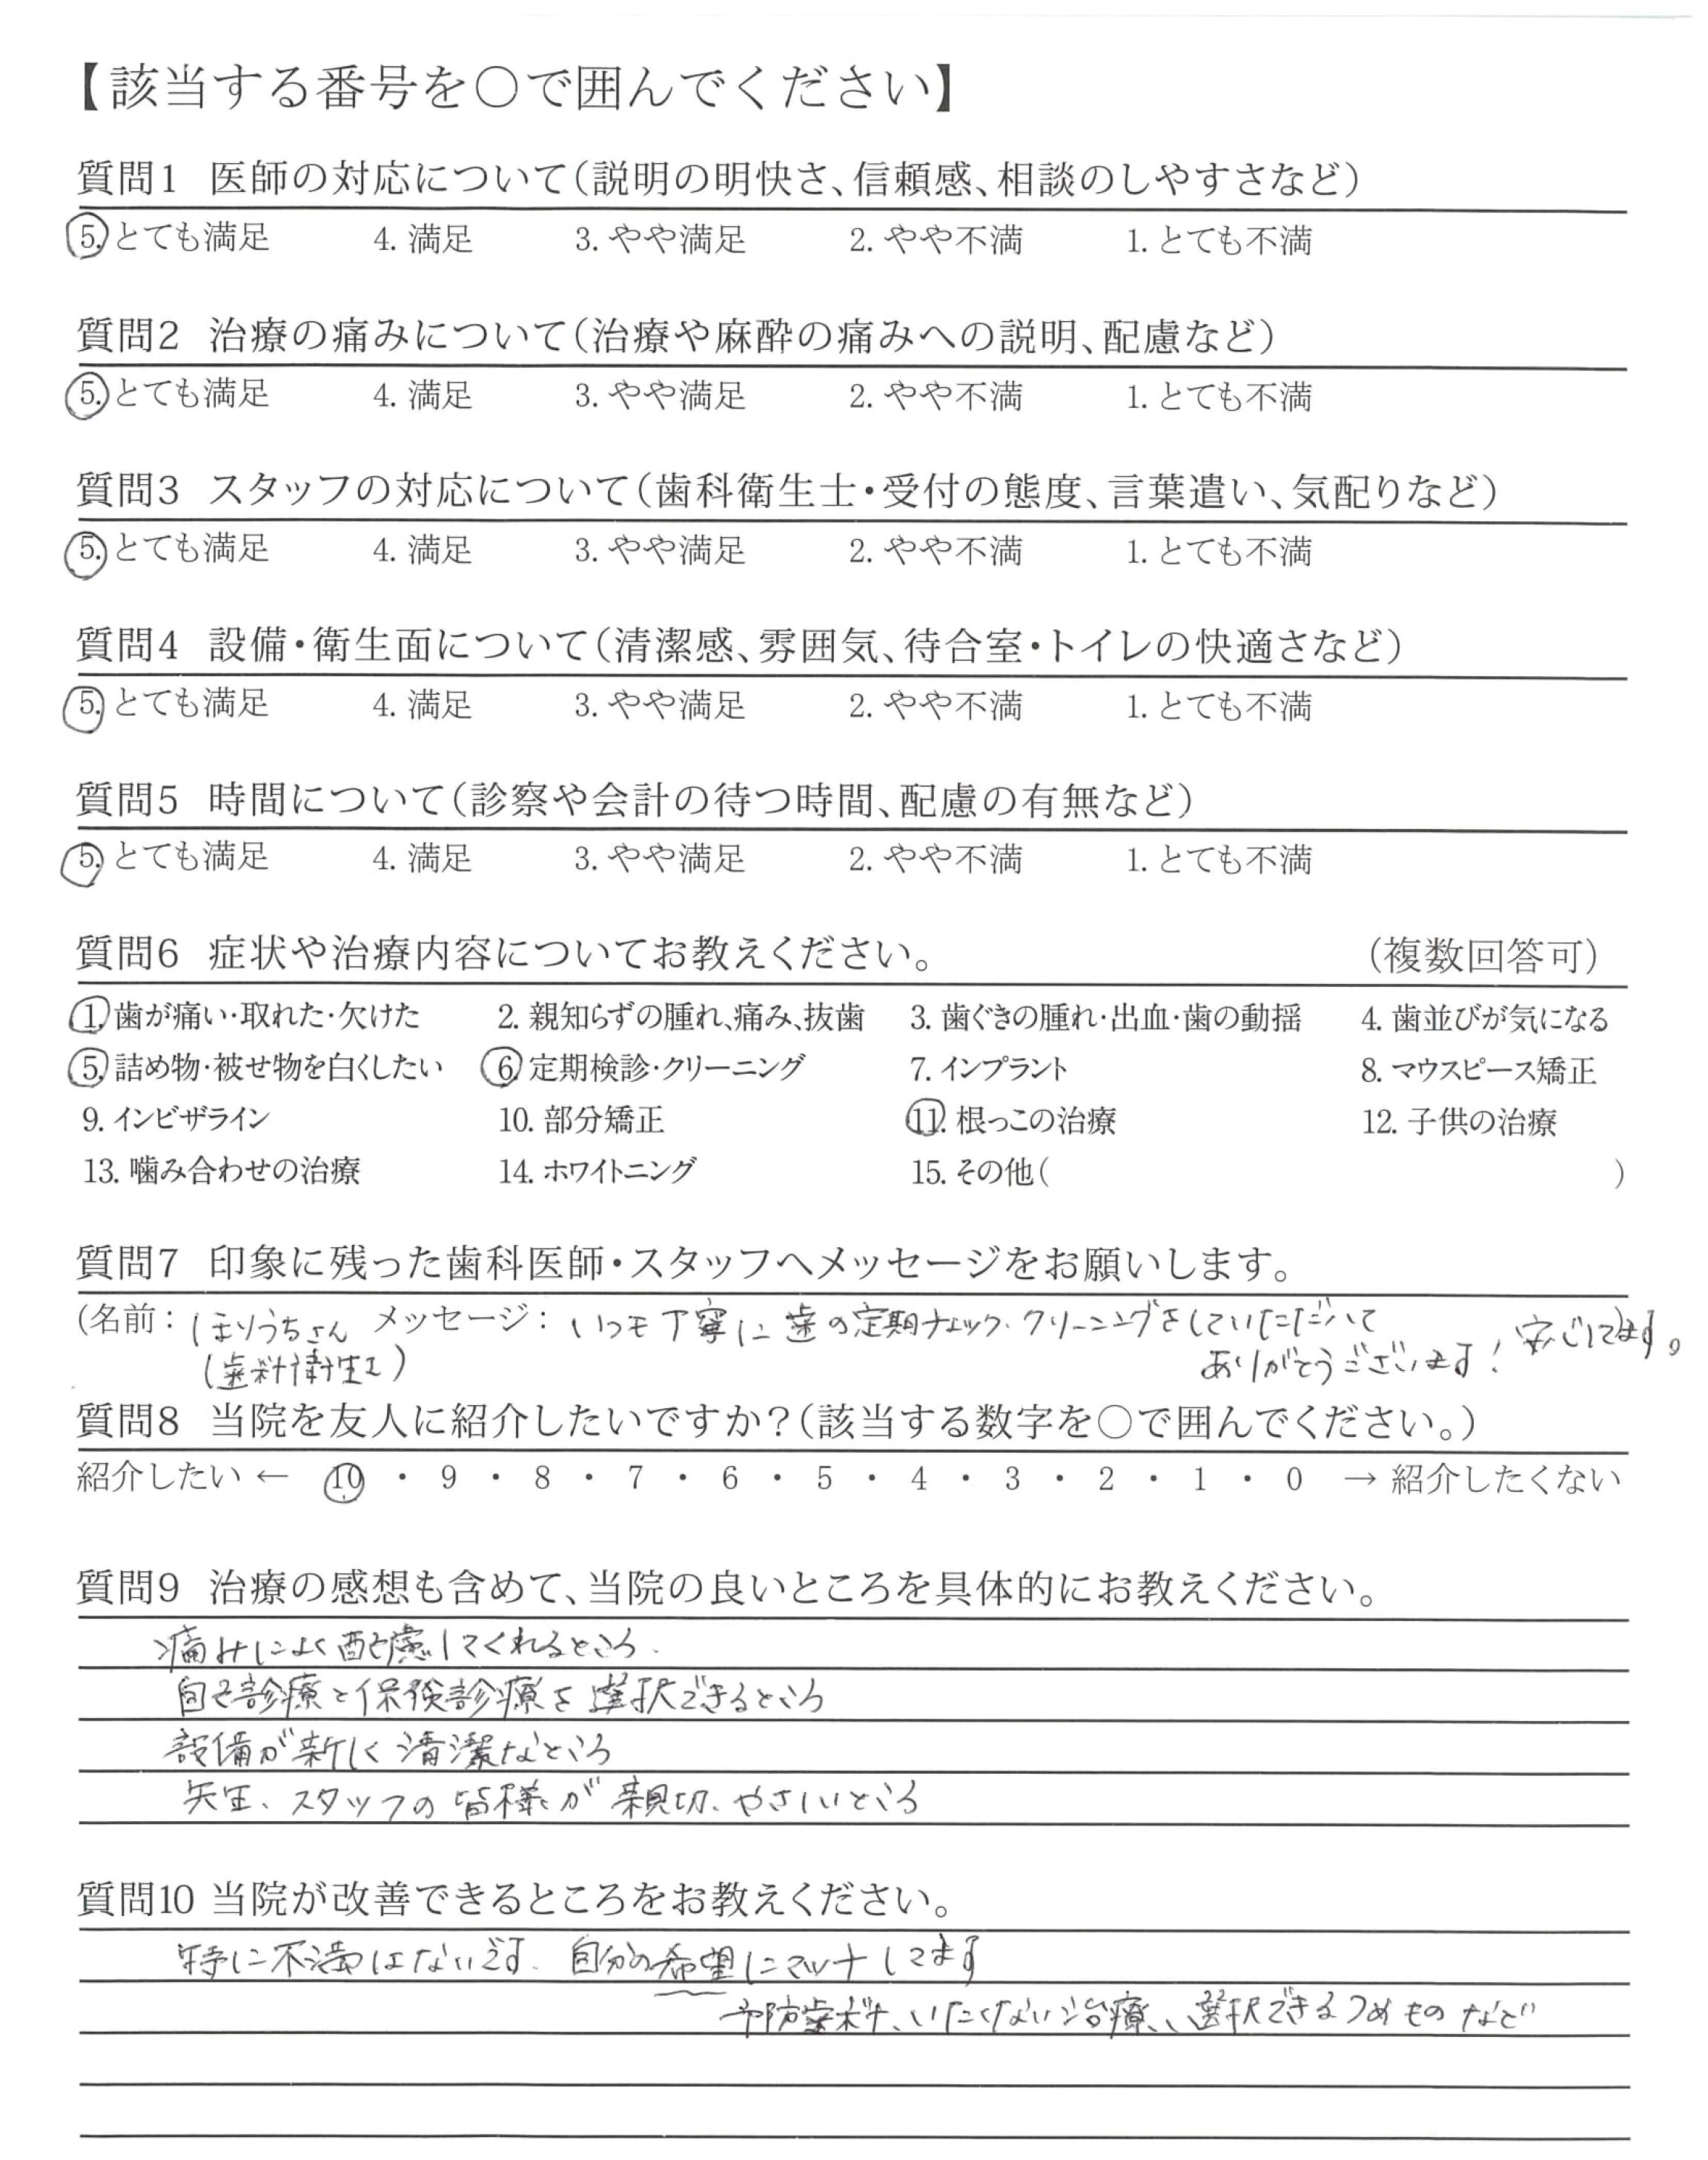 【該当する番号を○で囲んでください】
質問1 医師の対応について(説明の明快さ、信頼感、相談のしやすさなど)
5. とても満足 4. 満足 3. やや満足 2. やや不満 1. とても不満
質問2 治療の痛みについて(治療や麻酔の痛みへの説明、配慮など)
5. とても満足 4. 満足 3. やや満足 2. やや不満 1. とても不満
質問3 スタッフの対応について(歯科衛生士・受付の態度、言葉遣い、気配りなど)
5. とても満足 4. 満足 3. やや満足 2. やや不満 1. とても不満
質問4 設備・衛生面について(清潔感、雰囲気、待合室・トイレの快適さなど)
5. とても満足 4. 満足 3. やや満足 2. やや不満 1. とても不満
質問5 時間について(診察や会計の待つ時間、配慮の有無など)
5. とても満足 4. 満足 3. やや満足 2. やや不満 1. とても不満
質問6 症状や治療内容についてお教えください。 (複数回答可)
1. 歯が痛い・取れた・欠けた 2. 親知らずの腫れ、痛み、抜歯 3. 歯ぐきの腫れ・出血・歯の動揺 4. 歯並びが気になる
5. 詰め物・被せ物を白くしたい 6. 定期検診・クリーニング 7. インプラント 8. マウスピース矯正
9. インビザライン 10. 部分矯正 11. 根っこの治療 12. 子供の治療
13. 噛み合わせの治療 14. ホワイトニング 15. その他( )
質問7 印象に残った歯科医師・スタッフへメッセージをお願いします。
(名前: ほりうちさん メッセージ: いつも丁寧に歯の定期チェック、クリーニングをしていただいて
(歯科衛生士) ありがとうございます! 安心してます。
質問8 当院を友人に紹介したいですか?(該当する数字を○で囲んでください。)
紹介したい ← 10 ・ 9 ・ 8 ・ 7 ・ 6 ・ 5 ・ 4 ・ 3 ・ 2 ・ 1 ・ 0 → 紹介したくない
質問9 治療の感想も含めて、当院の良いところを具体的にお教えください。
痛みによく配慮してくれるところ.
自己診療と保険診療を選択できるところ
設備が新しく清潔なところ
先生、スタッフの皆様が親切、やさしいところ
質問10 当院が改善できるところをお教えください。
特に不満はないです. 自分の希望にマッチしてます
予防歯科、いたくない治療、選択できるつめものなど